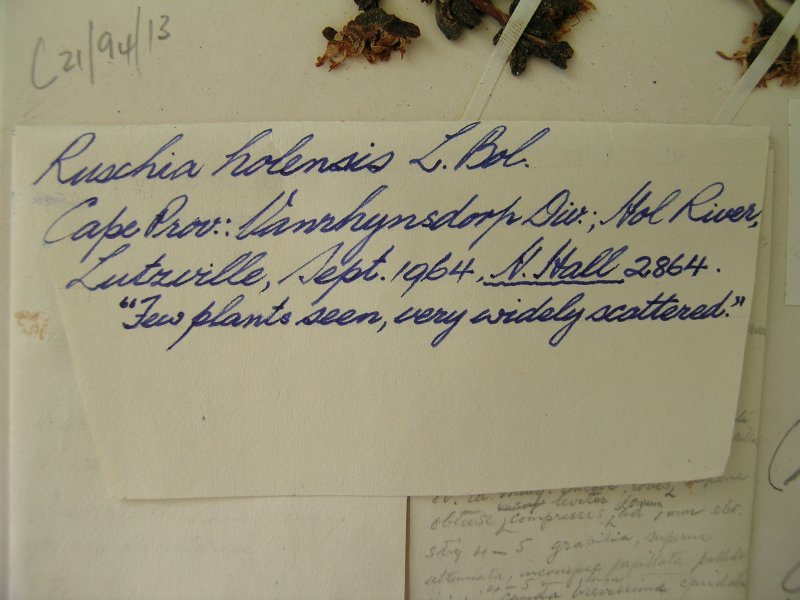 (21/94/13
Ruschia holensis L. Bol.
Cape Prov.: Vanrhynsdorp Div.; Hol River,
Lutzville, Sept. 1964, H. Hall 2864.
"Few plants seen, very widely scattered."
obtuse, compresses, ad 1 mm elat.
stig 4-5 gracilia, superne
attenuata, inconspep papillata pallida
4-5